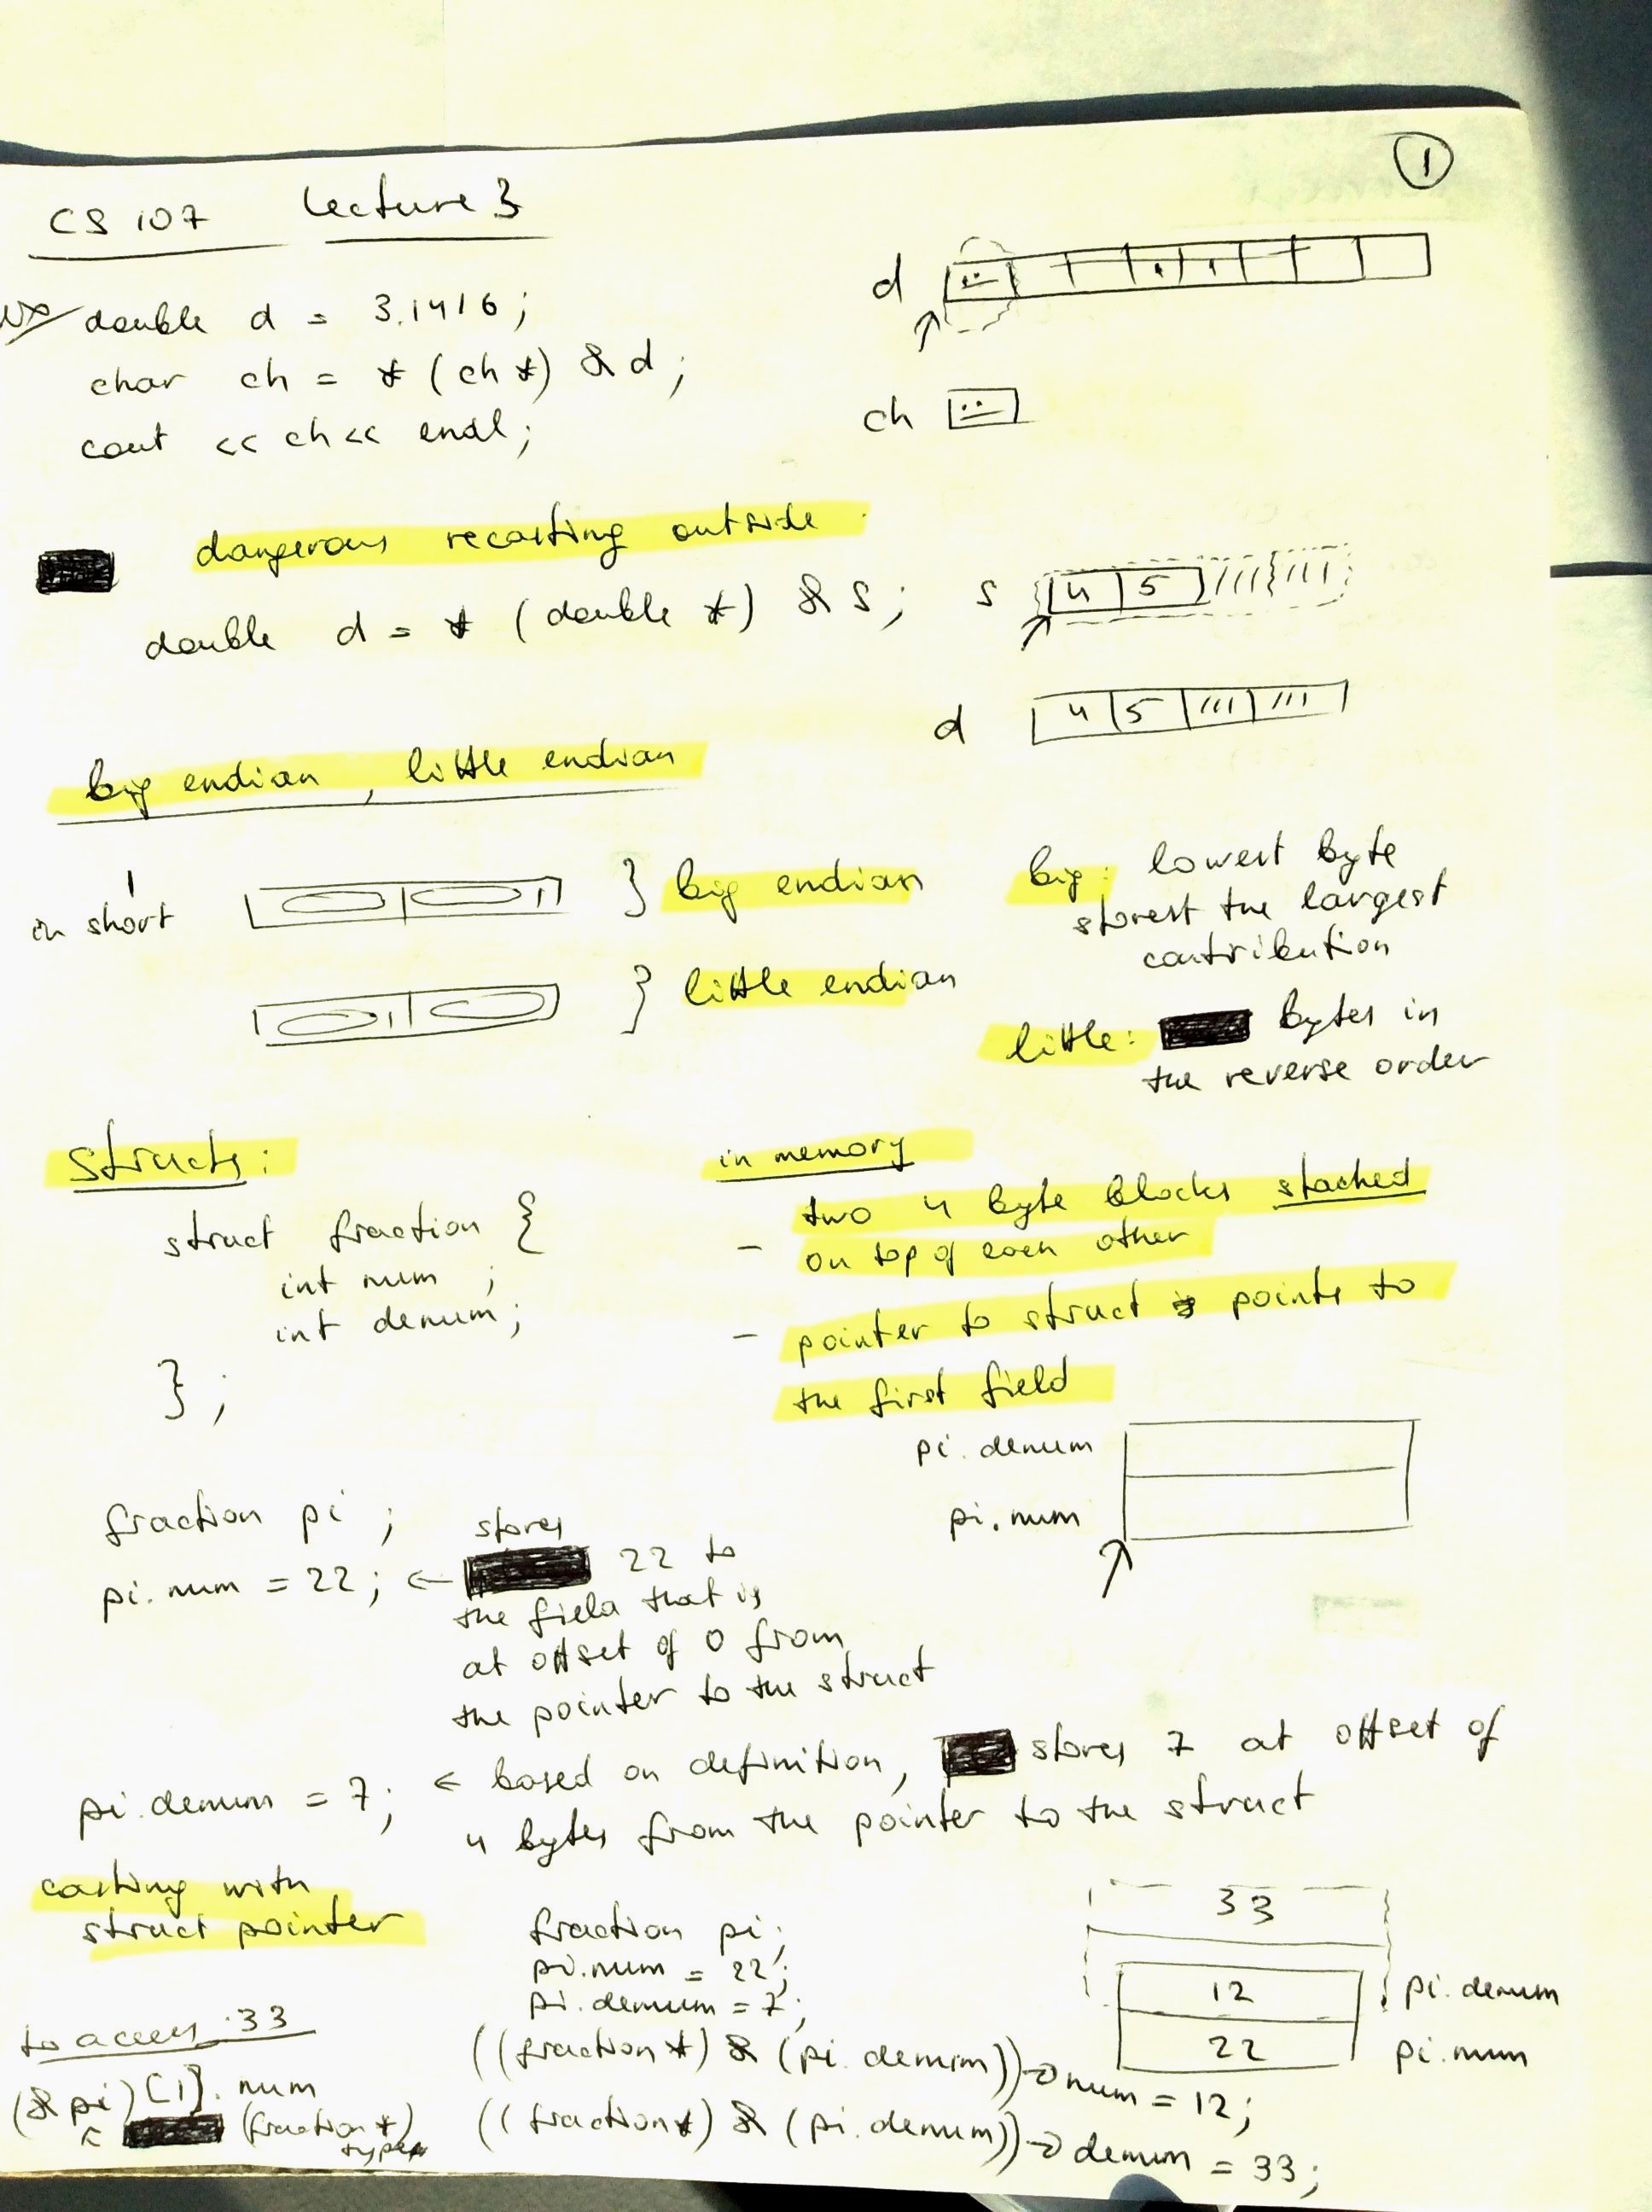 1
CS 107 Lecture 3
double d = 3.1416;
char ch = *(ch*) &d;
cout << ch << endl;
d
ch
dangerous recasting outside
double d = *(double *) &s;
s 4 5
d 4 5
big endian, little endian
1
in short
} big endian
} little endian
big: lowest byte
storest the largest
contribution
little: bytes in
the reverse order
structs:
struct fraction {
int num;
int denum;
};
in memory
- two 4 byte blocks stacked
on top of each other
- pointer to struct points to
the first field
pi.denum
pi.num
fraction pi;
pi.num = 22; ← stores 22 to
the field that is
at offset of 0 from
the pointer to the struct
pi.denum = 7; ← based on definition, stores 7 at offset of
4 bytes from the pointer to the struct
casting with
struct pointer
fraction pi;
pi.num = 22;
pi.denum = 7;
((fraction*) &(pi.denum))->num = 12;
((fraction*) &(pi.denum))->denum = 33;
33
12 pi.denum
22 pi.num
to access 33
(&pi)[1].num
(fraction*)
type